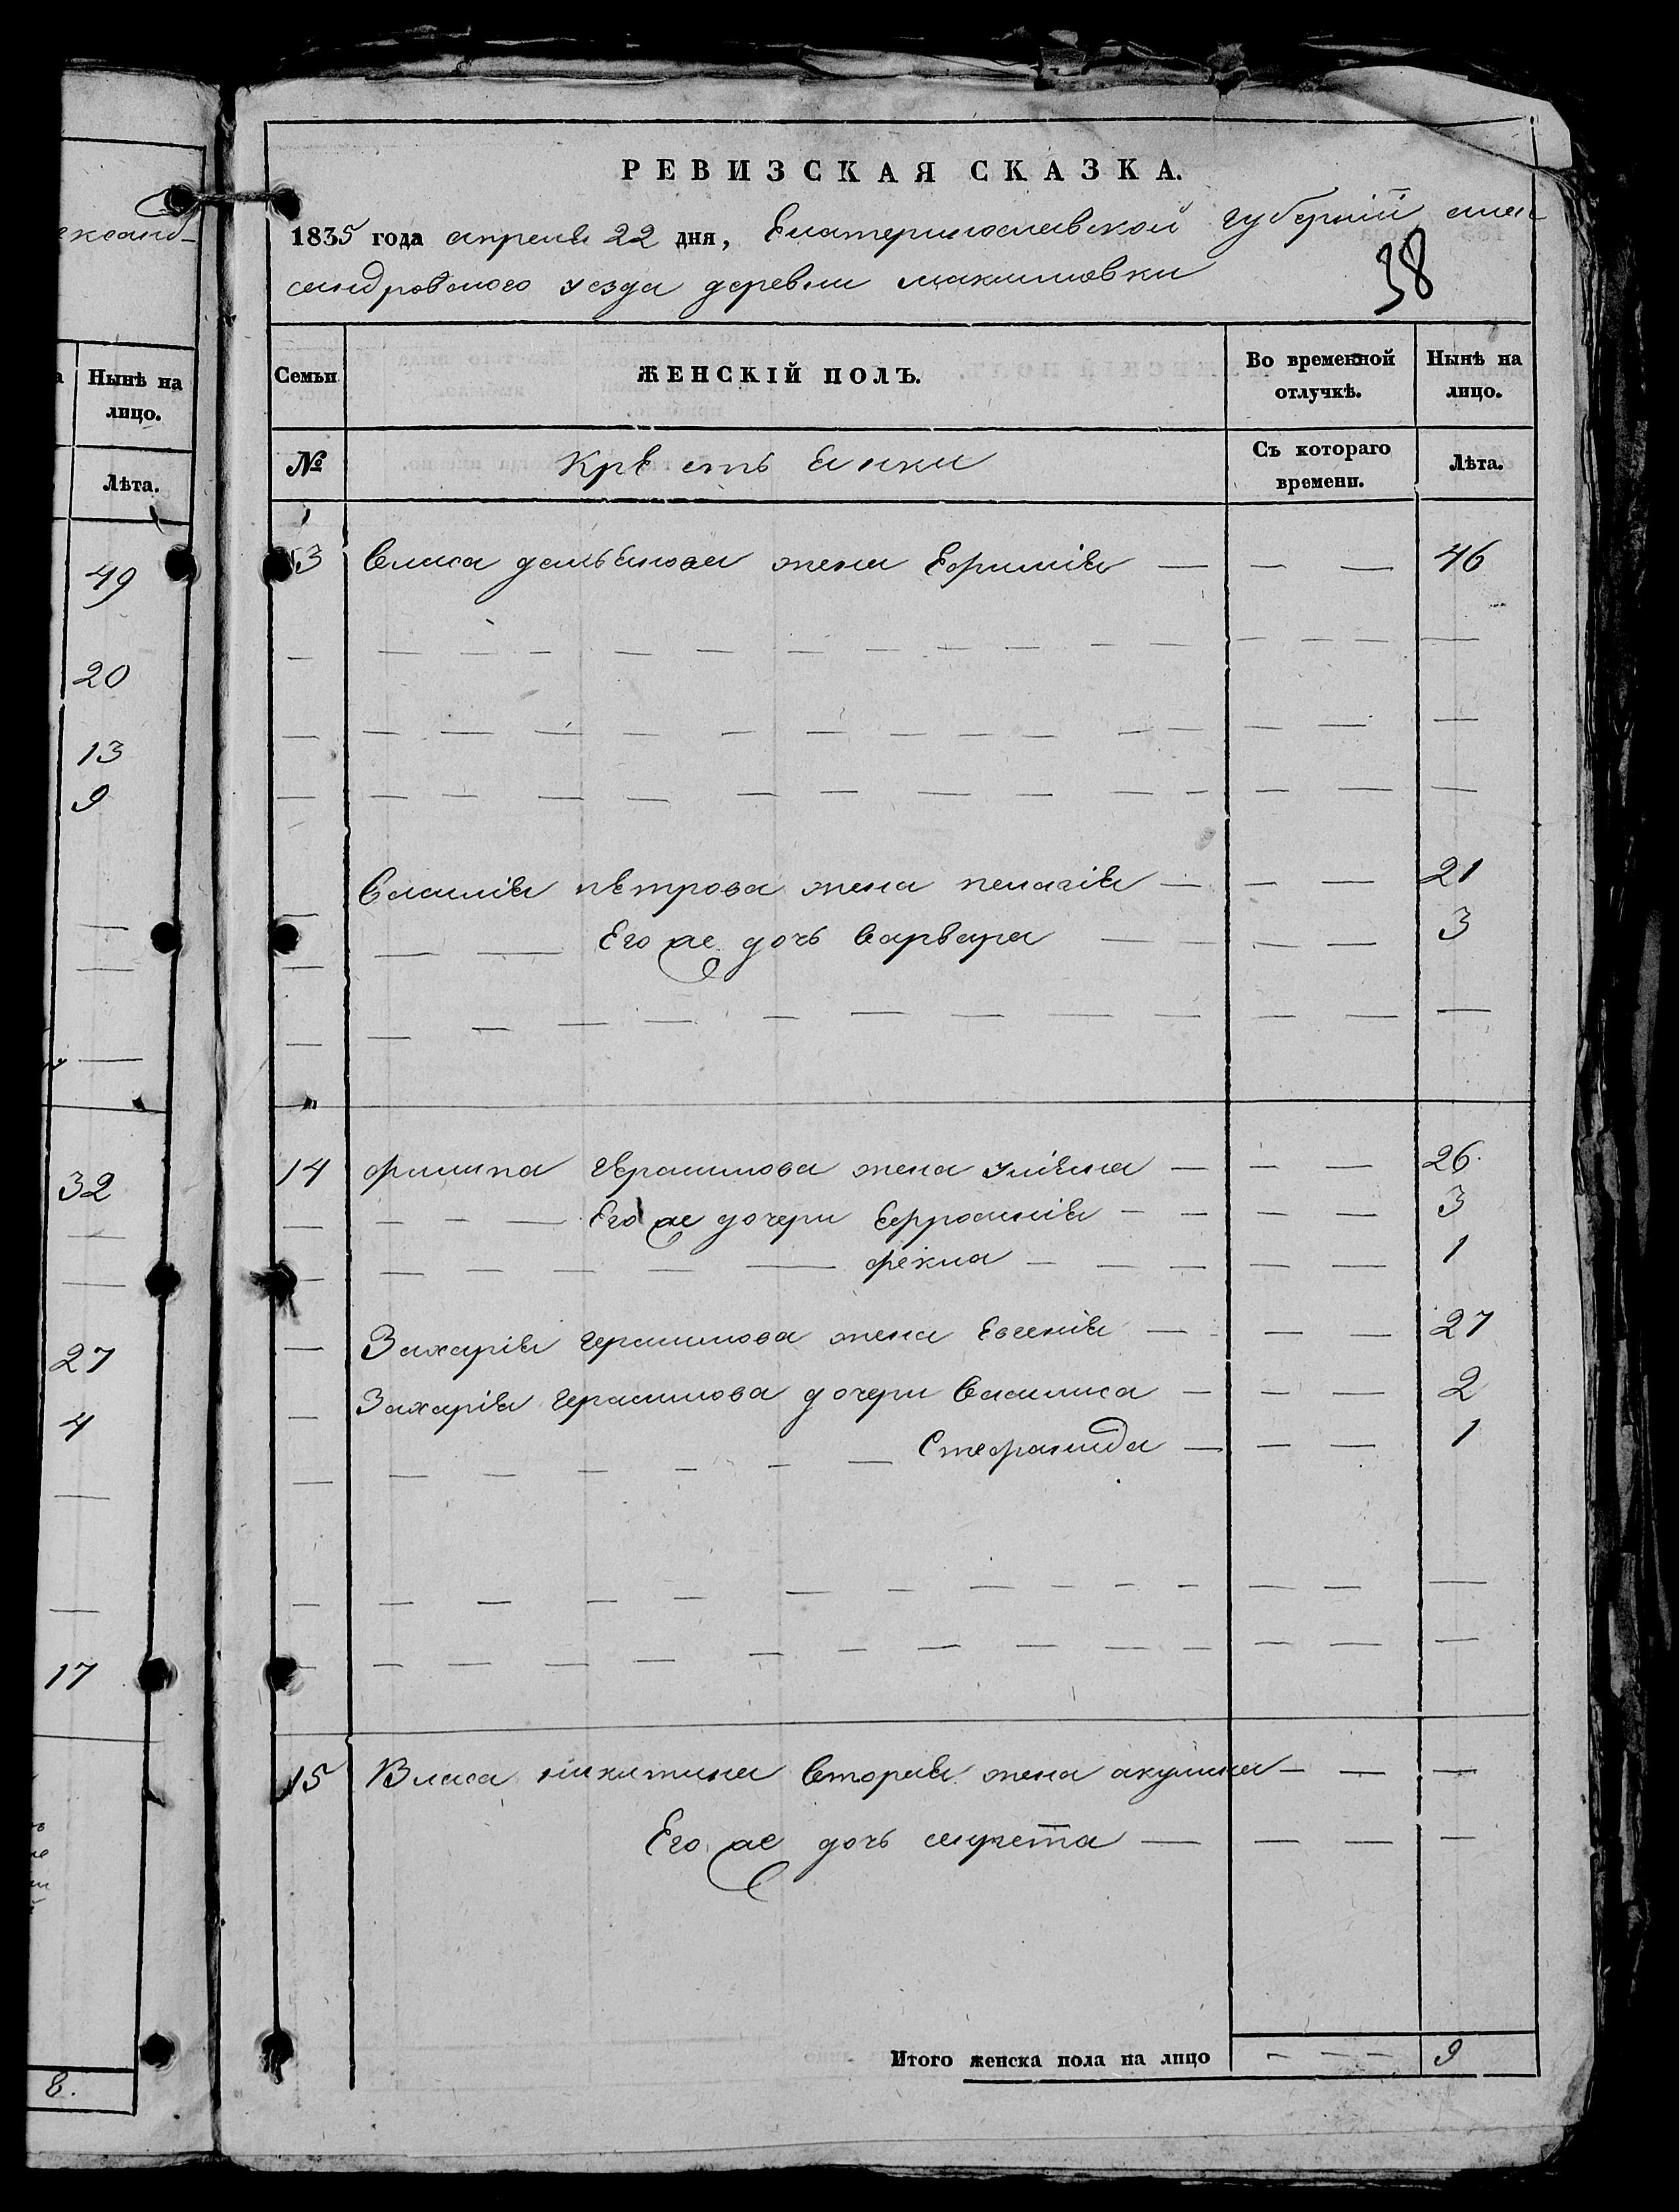 ександ-
Нынѣ на
лицо.
Лѣта.
49
20
13
9
32
27
4
17
8.
РЕВИЗСКАЯ СКАЗКА.
1835 года апреля 22 дня, Екатеринославской губерніи алек-
сандровского уезда деревни максимовки
38
Семьи
ЖЕНСКІЙ ПОЛЪ.
Во временной
отлучкѣ.
Нынѣ на
лицо.
№
Крестьянки
Съ котораго
времени.
Лѣта.
13 Власа демьянова жена Ефимія — — — 46
Василія петрова жена пелагія — — — 21
Его же дочь варвара — — — — 3
14 филипа герасимова жена улияна — — — 26
Его же дочери Ефросинія — — — — 3
фекла — — — — — 1
Захарія герасимова жена Евгенія — — — 27
Захарія герасимова дочери василиса — — — 2
Стефанида — — — 1
15 Власа никитина вторая жена акулина — — —
Его же дочь — — — —
Итого женска пола на лицо — — — 9